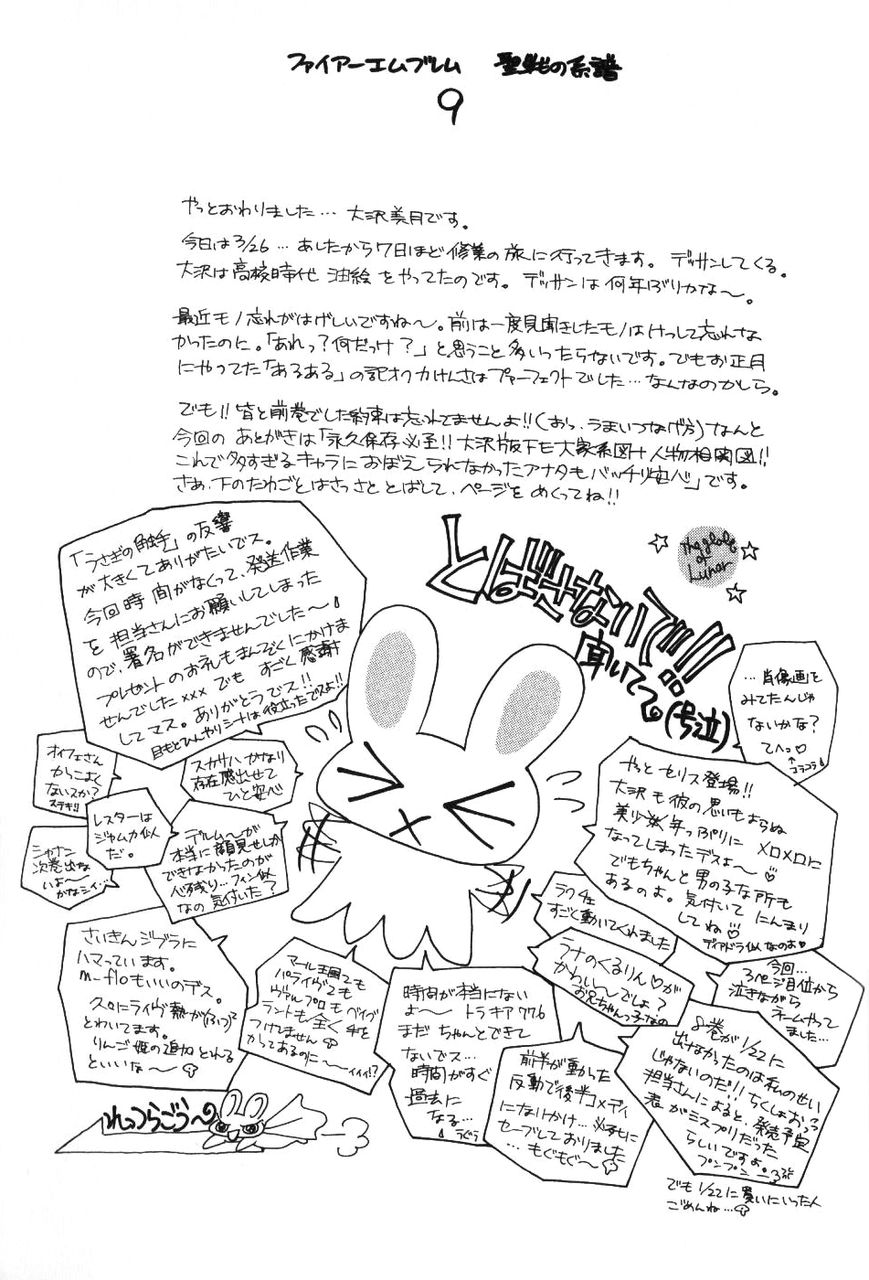 ファイアーエムブレム 聖戦の系譜
9
やっとおわりました… 大沢美月です。
今日は3/26…あしたから7日ほど修業の旅に行ってきます。デッサンしてくる。
大沢は高校時代 油絵をやってたのです。デッサンは何年ぶりかな〜。
最近モノ忘れがはげしいですね〜。前は一度見聞きしたモノはけっして忘れな
かったのに。「あれっ?何だっけ?」と思うこと多いったらないです。でもお正月
にやってた「あるある」の記オク力けんさはパーフェクトでした…なんなのかしら。
でも!!皆と前巻でした約束は忘れてませんよ!!(おっ、うまいつなげ方)なんと
今回の あとがきは「永久保存必至!!大沢版下も大家系図+人物相関図!!
これで多すぎるキャラにおぼえられなかったアナタもバッチリ安心」です。
さぁ、下のたわごとはさっさととばして、ページをめくってね!!
とばさないで!!
聞いてて。(号泣)
The globe
of
Lunar
「うさぎの触手」の反響
が大きくてありがたいでス。
今回時間がなくって、発送作業
を担当さんにお願いしてしまった
ので、署名ができませんでした〜
プレゼントのお礼もまんぞくにかけま
せんでした×××でも すごく感謝
してマス。ありがとうでス!!
目もとひんやりシートは役立ったでスよ!!
…肖像画を
みてたんじゃ
ないかな?
てへっ♡
↑
コラコラ
オイフェさん
かっこよく
ないスか?
ステキ!!
スカサハ かなり
存在感出せて
ひと安心
レスターは
ジャムカ似
だ。
シャナン
次巻出な
いよ〜
かなシイ…
デルム〜が
本当に顔見せしか
できなかったのが
心残り…フィン似
なの 気付いた?
やっとセリス登場!!
大沢も彼の思いもよらぬ
美少年っぷりに メロメロに
なってしまったデスよ〜♡
でもちゃんと男の子な所も
あるのよ。気付いて にんまり
してね♡
ディアドラ似なのよ♡
ラクチェ
すごく動いてくれました
ラナのくるりん♡が
かわい〜でしょ?
お兄ちゃんっ子なの
さいきんジブラに
ハマっています。
m-floもいいのデス。
久々にライヴ熱が(ふつっ)
とわいてます。
りんご姫の追加 とれる
といいな〜
マール王国2も
パライヴ2も
ヴァルプロも ベイグ
ラントも全く手を
つけてません
かってあるのに〜
イイイ!?
時間が本当にない
よ〜 トラキア776
まだ ちゃんとできて
ないでス…
時間がすぐ
過去に
なる…
前半が動かった
反動で後半コメディ
になりかけ…必死に
セーブしておりました
…もぐもぐ〜
今回…
3ページ目位から
泣きながら
ネームやって
ました…
8巻が1/22に
出なかったのは私のせい
じゃないのだ!!ちくしょおっっ
担当さんによると、発売予定
表がミスプリだった
らしいですよ。
プンプン
でも1/22に買いにいった人
ごめんね…
れっつらごう〜